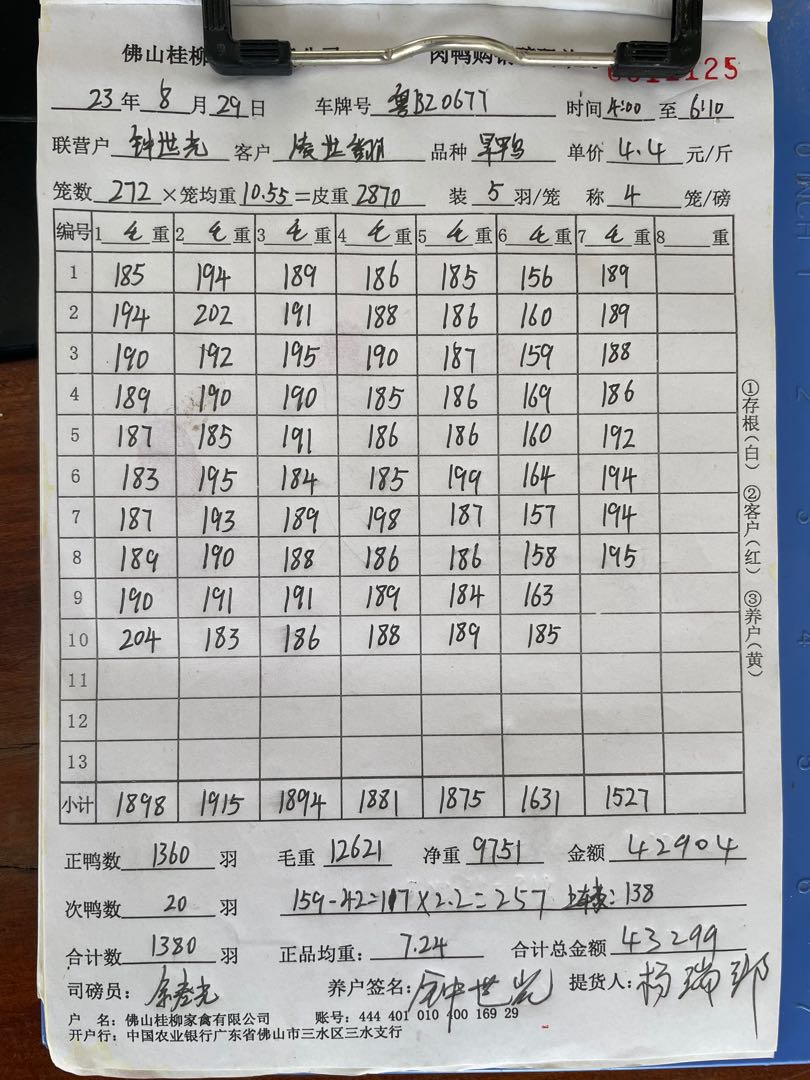 佛山桂柳 肉鸭购销
125
23年8月29日 车牌号 粤BZ067 时间4:00至6:10
联营户 钟世光 客户 品种 单价 4.4 元/斤
笼数272×笼均重10.55=皮重2870 装5羽/笼 称4笼/磅
编号 1毛重 2毛重 3毛重 4毛重 5毛重 6毛重 7毛重 8 重
1 185 194 189 186 185 156 189
2 194 202 191 188 186 160 189
3 190 192 195 190 187 159 188
4 189 190 190 185 186 169 186
5 187 185 191 186 186 160 192
6 183 195 184 185 199 164 194
7 187 193 189 198 187 157 194
8 189 190 188 186 186 158 195
9 190 191 191 189 184 163
10 204 183 186 188 189 185
11
12
13
小计 1898 1915 1894 1881 1875 1631 1527
正鸭数1360羽 毛重12621 净重9751 金额42904
次鸭数20羽 159-42=117×2.2=257 上车费:138
合计数1380羽 正品均重:7.24 合计总金额43299
司磅员: 养户签名:钟世光 提货人:杨瑞邦
户 名:佛山桂柳家禽有限公司 账号:444 401 010 400 169 29
开户行:中国农业银行广东省佛山市三水区三水支行
①存根(白) ②客户(红) ③养户(黄)